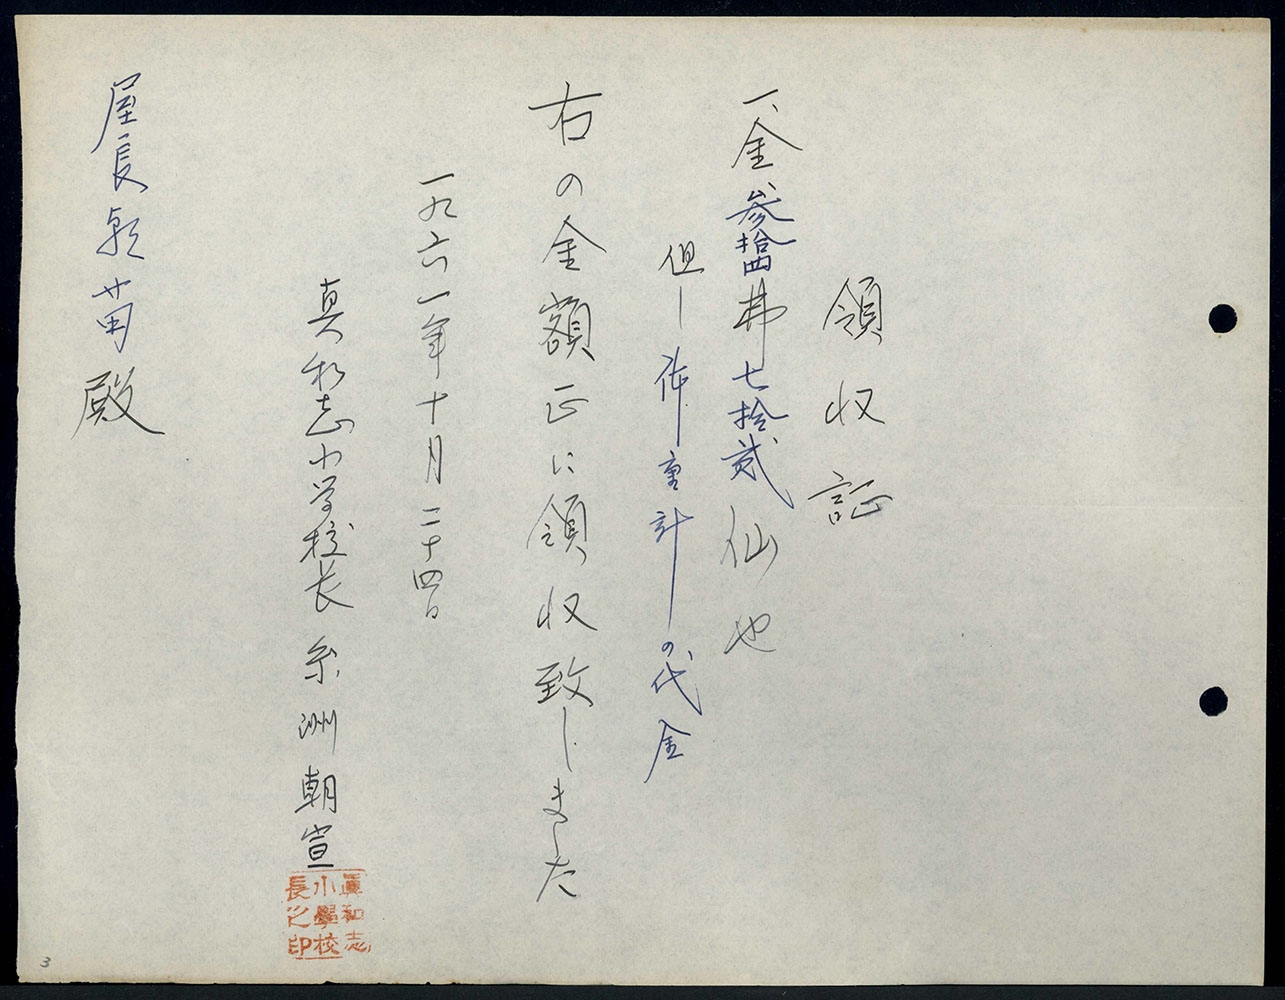 領収証
一、金参拾四弗七拾貮仙也
但し体重計の代金
右の金額正に領収致しました
一九六一年十月二十四日
真和志小学校長 糸洲朝宣
眞和志
小學校
長之印
屋長 苗殿
3